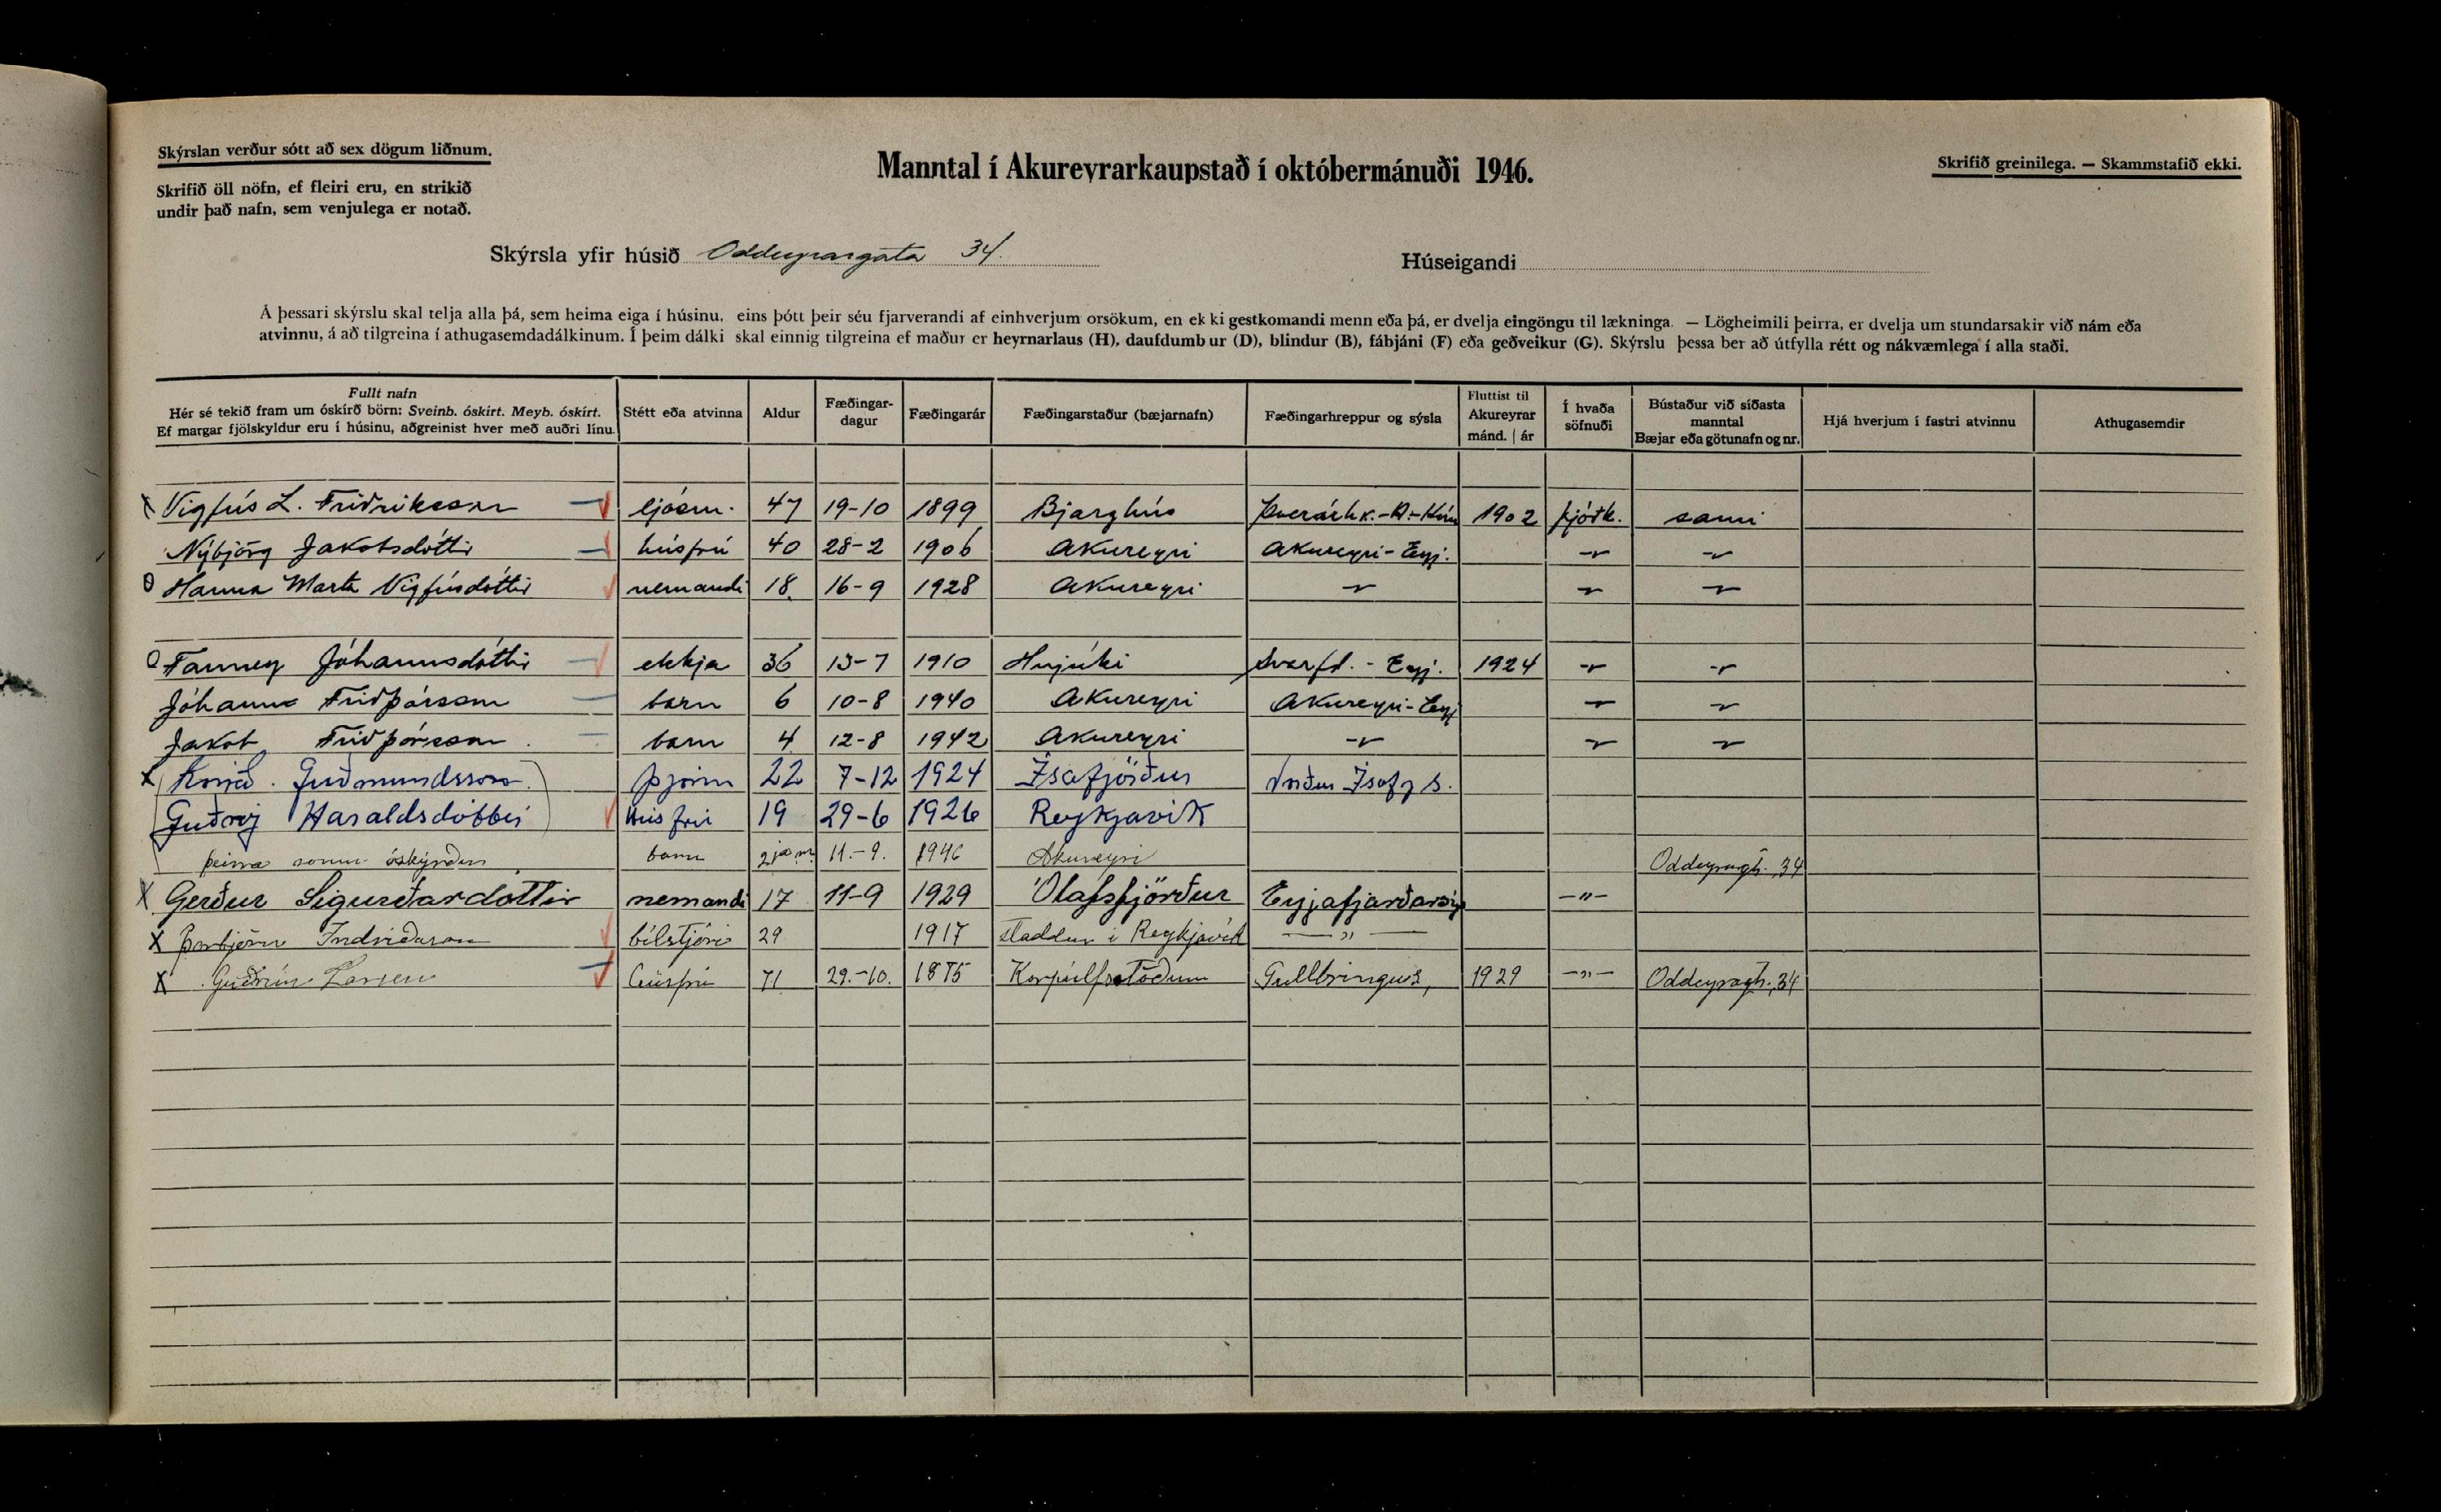 Skýrslan verður sótt að sex dögum liðnum.
Skrifið öll nöfn, ef fleiri eru, en strikið
undir það nafn, sem venjulega er notað.
Manntal í Akureyrarkaupstað í októbermánuði 1946.
Skrifið greinilega. — Skammstafið ekki.
Skýrsla yfir húsið Oddeyrargata 34.
Húseigandi
Á þessari skýrslu skal telja alla þá, sem heima eiga í húsinu, eins þótt þeir séu fjarverandi af einhverjum orsökum, en ekki gestkomandi menn eða þá, er dvelja eingöngu til lækninga. — Lögheimili þeirra, er dvelja um stundarsakir við nám eða
atvinnu, á að tilgreina í athugasemdadálkinum. Í þeim dálki skal einnig tilgreina ef maður er heyrnarlaus (H), daufdumbur (D), blindur (B), fábjáni (F) eða geðveikur (G). Skýrslu þessa ber að útfylla rétt og nákvæmlega í alla staði.
Fullt nafn
Hér sé tekið fram um óskírð börn: Sveinb. óskírt. Meyb. óskírt.
Ef margar fjölskyldur eru í húsinu, aðgreinist hver með auðri línu.
Stétt eða atvinna
Aldur
Fæðingar-
dagur
Fæðingarár
Fæðingarstaður (bæjarnafn)
Fæðingarhreppur og sýsla
Fluttist til
Akureyrar
mánd. | ár
Í hvaða
söfnuði
Bústaður við síðasta
manntal
Bæjar eða götunafn og nr.
Hjá hverjum í fastri atvinnu
Athugasemdir
X Vigfús L. Friðriksson ljósm. 47 19-10 1899 Bjarghús Þverárhr.-V.-Hún 1902 þjóðk. sami
Nýbjörg Jakobsdóttir húsfrú 40 28-2 1906 Akureyri Akureyri-Eyj. -"- -"-
O Hanna Marta Vigfúsdóttir nemandi 18. 16-9 1928 Akureyri -"- -"- -"-
O Fanney Jóhannsdóttir ekkja 36 13-7 1910 Hnjúki Svarfd. - Eyj. 1924 -"- -"-
Jóhann Friðþórsson barn 6 10-8 1940 Akureyri Akureyri-Eyj -"- -"-
Jakob Friðþórsson barn 4 12-8 1942 Akureyri -"- -"- -"-
X Guðmundsson þjónn 22 7-12 1924 Ísafjörður Norður Ísafj s.
Haraldsdóttir Húsfrú 19 29-6 1926 Reykjavík
þeirra sonur óskýrður barn 11.-9. 1946 Akureyri Oddeyrargt. 34
X Gerður Sigurðardóttir nemandi 17 11-9 1929 Ólafsfjörður Eyjafjarðarsýs -"-
X Þorbjörn Indriðason bílstjóri 29 1917 staddur í Reykjavík — " —
X Guðrún Larsen húsfrú 71 29.-10. 1875 Korpúlfsstöðum Gullbringus, 1929 -"- Oddeyrargt. 34